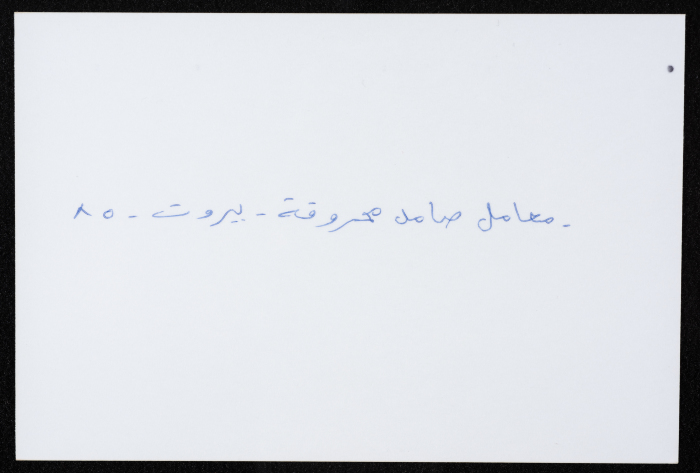 - معامل صامد محروقة - بيروت - ٨٥